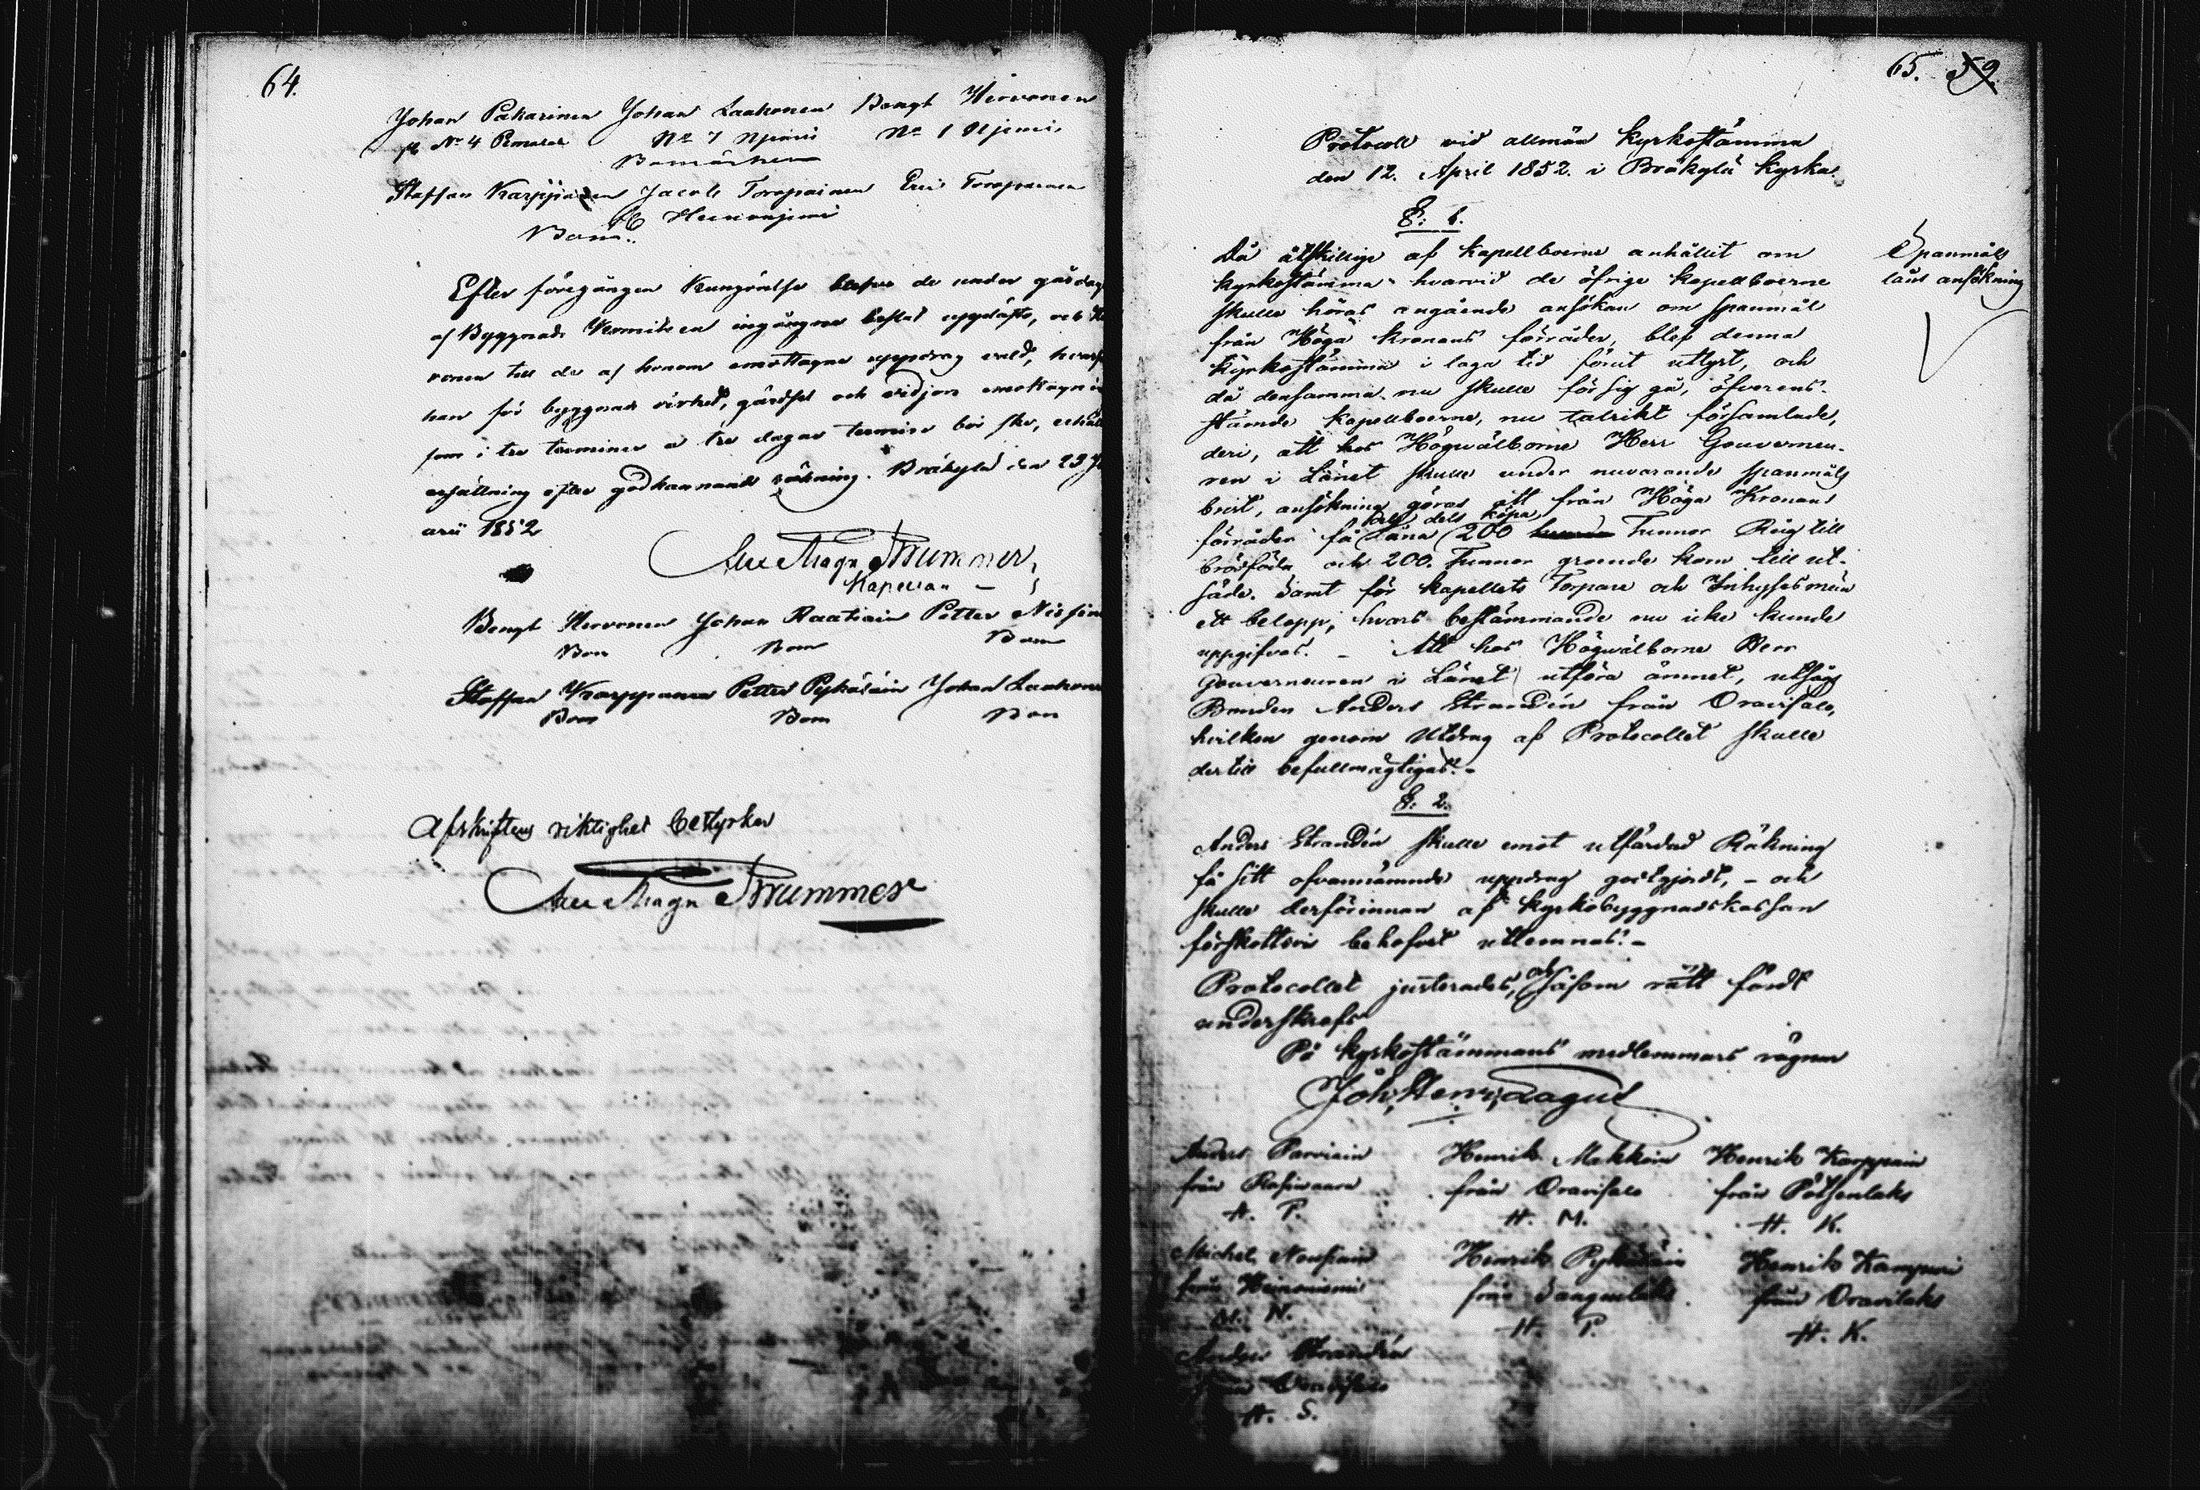 64.
Johan Pakarinen Johan Laakonen Bengt Hirvonen
No 4 No 7 No 1
Staffan Karppinen Jacob Toropainen Eric Toropainen
Efter föregången kungörelse blefvo de under gårdag
af Byggnads Komiteen ingångne beslut uppläste, och
ronen till de af honom emottagne uppdrag vald,
han för byggnads virket, gärdsel och vidjors emottagn
som i tre terminer a tre dagar termin bör ske,
ersättning efter godkannande räkning. Bräkylä den 23
arii 1852
Alex Magn Brummer,
Kapellan
Bengt Hirvonen Johan Raatikain Petter Nissin
Bon Bon Bon
Staffan Karppanen Petter Pykäläin Johan Laakon
Bon Bon Bon
Afskriftens riktighet bestyrker
Alex Magn Brummer
65. 59.
Protocoll vid allmän kyrkostämma
den 12. April 1852. i Bräkylä kyrka.
§: 1.
Spanmåls
låns ansökning
Då åtskillige af kapellboerne anhållit om
kyrkostämma hvarvid de öfrige kapellboerne
skulle höras angående ansökan om spanmål
från Höga kronans förråder, blef denna
kyrkostämma i laga tid förut utlyst, och
då densamma nu skulle försiggå, öfverens-
stämde kapellboerne, nu talrikt församlade,
deri, att hos Högwälborne Herr Gouverneu-
ren i Länet skulle under nuvarande spanmåls
brist, ansökning göras att från Höga Kronans
förråder få dels låna dels köpa, 200 Tunnor Råg till
brödföda och 200. Tunnor groende korn till ut-
säde. Samt för kapellets Torpare och Inhysesmän
ett belopp, hvars bestämmande nu icke kunde
uppgifvas. – Att hos Högwälborne Herr
Gouverneuren i Länet utföra ämnet, utsågs
Bonden Anders Strandén från Oravisalo,
hvilken genom Utdrag af Protocollet skulle
dertill befullmägtigas. –
§: 2.
Anders Strandén skulle emot utfärdad Räkning
få sitt ofvannämnde uppdrag godtgjordt, – och
skulle derförinnan af kyrkobyggnadskassan
förskottsvis behofvet utlemnas. –
Protocollet justerades, och såsom rätt fördt
underskrefs
På kyrkostämmans medlemmars vägnar
Joh. Henr. Lagus
Anders Parviain Henrik Makkoin Henrik Karppain
från Rasivaara från Oravisalo från Pötsenlaks
A. P. H. M. H. K.
Michel Nousiain Henrik Pykäläin Henrik Kampuri
från Heinoniemi från Sangenlaks från Oravilaks
M. N. H. P. H. K.
Anders Strandén
från Oravisalo
A. S.